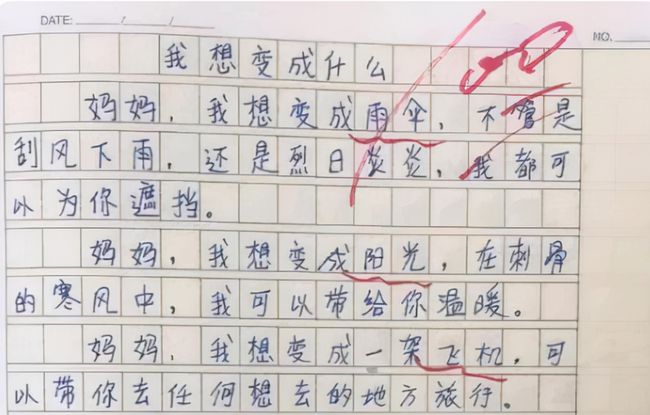 DATE: / /
NO.
我想变成什么
妈妈，我想变成雨伞，不管是
刮风下雨，还是烈日炎炎，我都可
以为你遮挡。
妈妈，我想变成阳光，在刺骨
的寒风中，我可以带给你温暖。
妈妈，我想变成一架飞机，可
以带你去任何想去的地方旅行。